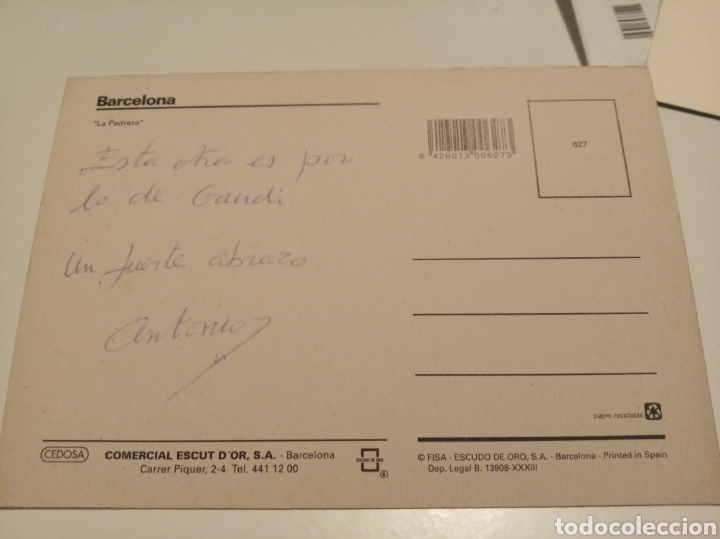 Barcelona
"La Pedrera"
8 426013 006273
627
Esta otra es por
lo de Gaudi
Un fuerte abrazo
Antonio
paper reciclable
CEDOSA
COMERCIAL ESCUT D'OR, S.A. - Barcelona
Carrer Piquer, 2-4 Tel. 441 12 00
ESCUDO DE ORO
®
© FISA - ESCUDO DE ORO, S.A. - Barcelona - Printed in Spain
Dep. Legal B. 13908-XXXIII
todocoleccion